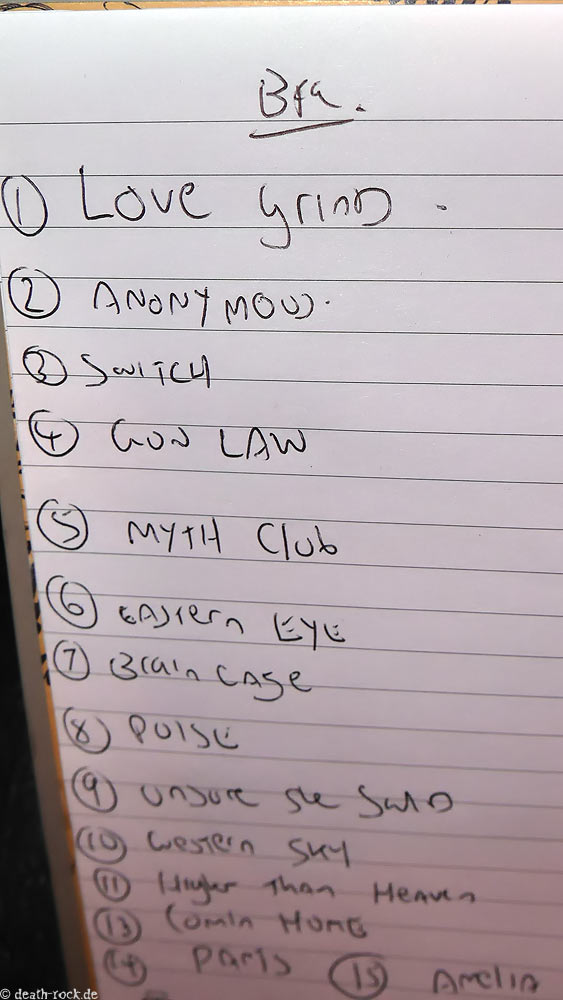 Bfa.
① Love Grind.
② ANONYMOUS.
③ SWITCH
④ GUN LAW
⑤ MYTH Club
⑥ EASTERN EYE
⑦ Brain CASE
⑧ PULSE
⑨ UNSURE She SAID
⑩ Western SKY
⑪ Higher Than Heaven
⑬ Comin HOME
⑭ PARIS ⑮ Amelia
© death-rock.de